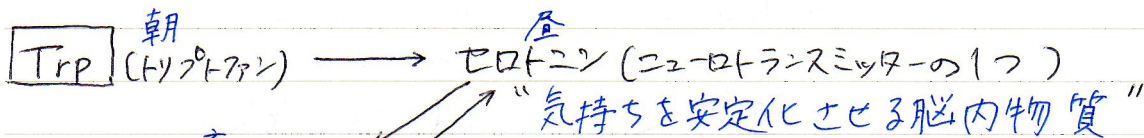 朝 昼
Trp (トリプトファン) → セロトニン (ニューロトランスミッターの1つ)
"気持ちを安定化させる脳内物質"